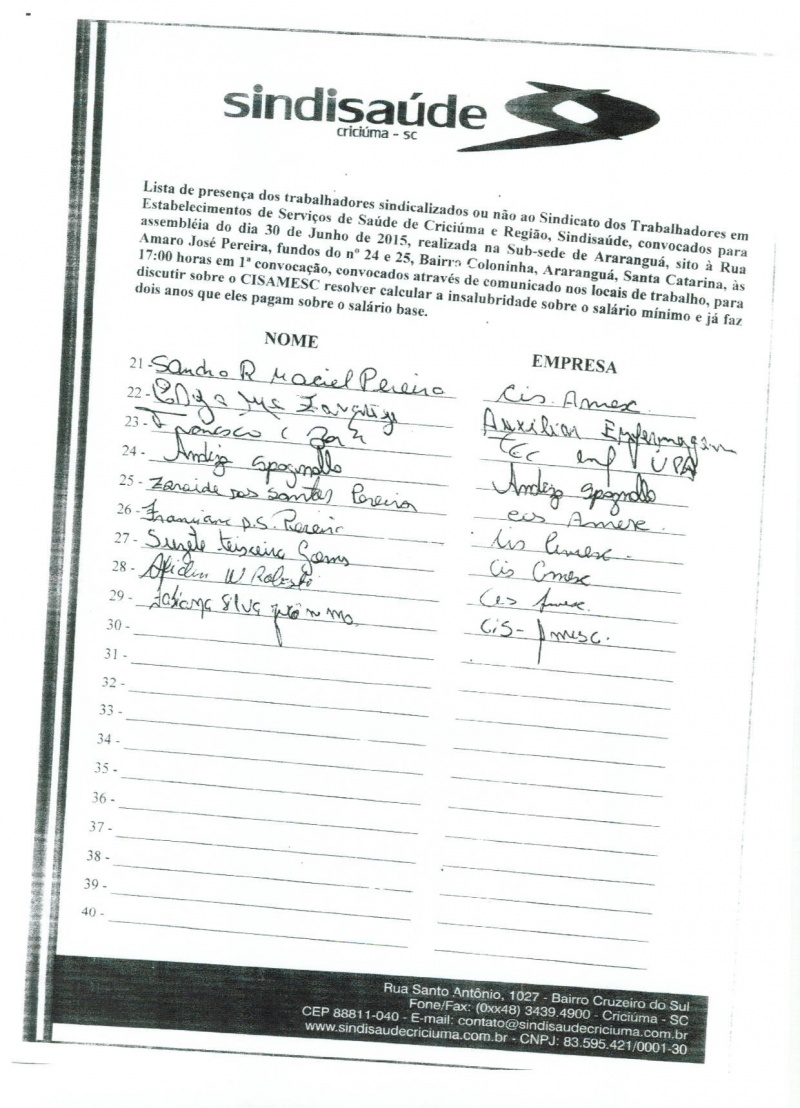 sindisaúde
criciúma - sc
Lista de presença dos trabalhadores sindicalizados ou não ao Sindicato dos Trabalhadores em
Estabelecimentos de Serviços de Saúde de Criciúma e Região, Sindisaúde, convocados para
assembléia do dia 30 de Junho de 2015, realizada na Sub-sede de Araranguá, sito à Rua
Amaro José Pereira, fundos do nº 24 e 25, Bairro Coloninha, Araranguá, Santa Catarina, às
17:00 horas em 1ª convocação, convocados através de comunicado nos locais de trabalho, para
discutir sobre o CISAMESC resolver calcular a insalubridade sobre o salário mínimo e já faz
dois anos que eles pagam sobre o salário base.
NOME EMPRESA
21 - Sandro R Maciel Pereira Cis. Amesc.
22 - Auxiliar Enfermagem
23 - Francisco C Tec enf UPA
24 - Andeza Spagnollo Andeza Spagnollo
25 - Zoraide dos Santos Pereira cis Amesc.
26 - Franciane D.S. Pereira Cis
27 - Surete Teixeira Gomes Cis Amesc
28 - W Roberto
29 - Fabiana Silva Cis-Amesc.
30 -
31 -
32 -
33 -
34 -
35 -
36 -
37 -
38 -
39 -
40 -
Rua Santo Antônio, 1027 - Bairro Cruzeiro do Sul
Fone/Fax: (0xx48) 3439.4900 - Criciúma - SC
CEP 88811-040 - E-mail: contato@sindisaudecriciuma.com.br
www.sindisaudecriciuma.com.br - CNPJ: 83.595.421/0001-30